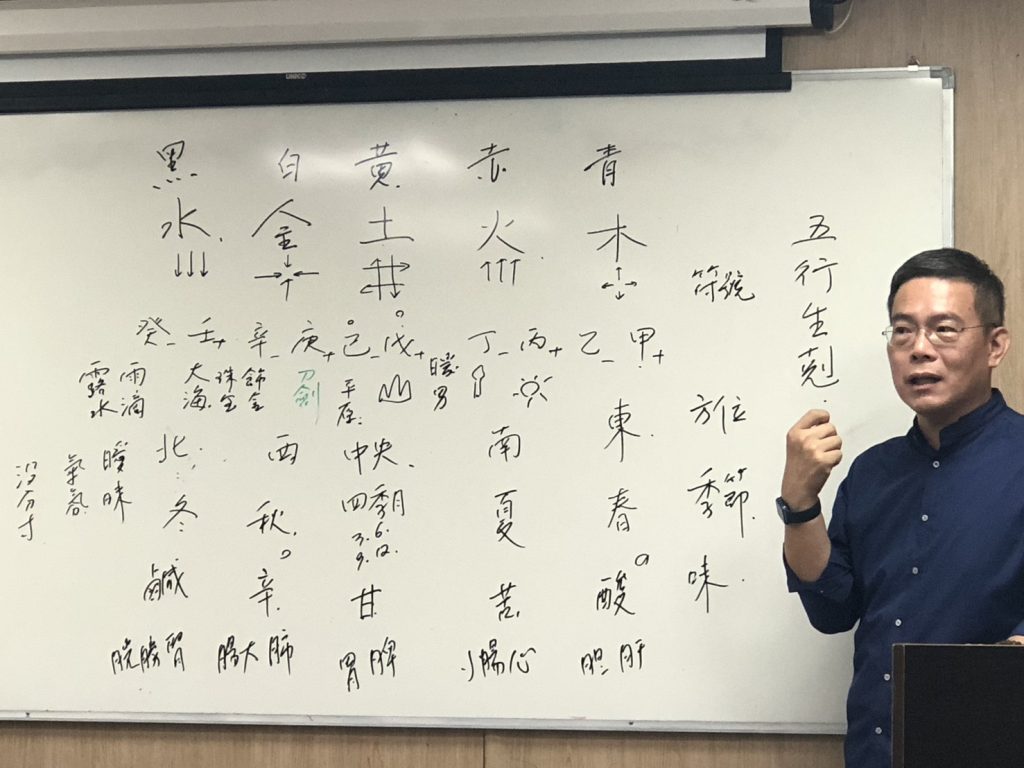 五行生剋
符號
方位
季節
味
青
木
甲+
乙-
東
春
酸
肝
胆
赤
火
丙+
丁-
暖男
南
夏
苦
心
小腸
黃
土
戊+
己-
中央
四季月
3.6.
9.12.
甘
脾
胃
白
金
庚+
辛-
刀劍
飾金
珠宝
西
秋
辛
肺
大腸
黑
水
壬+
癸-
大海
雨滴
露水
北
冬
鹹
腎
膀胱
曖昧
氣氛
沒分寸